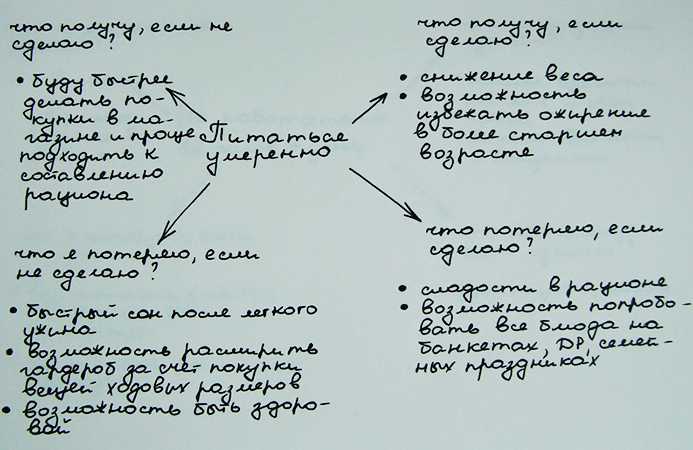 что получу, если не
сделаю?
• буду быстрее
делать по-
купки в ма-
газине и проще
подходить к
составлению
рациона
Питаться
умеренно
что получу, если
сделаю?
• снижение веса
• возможность
избежать ожирение
в более старшем
возрасте
что я потеряю, если
не сделаю?
• быстрый сон после легкого
ужина
• возможность расширить
гардероб за счет покупки
вещей ходовых размеров
• возможность быть здоро-
вой
что потеряю, если
сделаю?
• сладости в рационе
• возможность попробо-
вать все блюда на
банкетах, ДР, семей-
ных праздниках